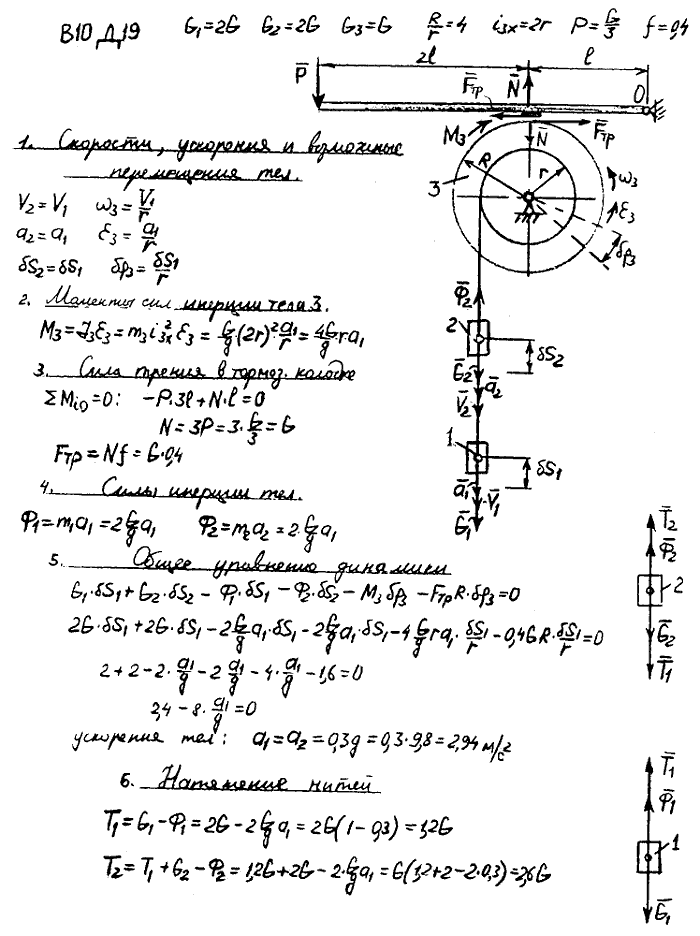 В10 Д19 G₁=2G G₂=2G G₃=G R/r=4 i₃ₓ=2r P=G/3 f=0,4
2l l
P̄ F̄тр N̄ O
M₃ N̄ F̄тр
3 R r ω₃
ε₃
δφ₃
1. Скорости, ускорения и возможные
перемещения тел.
V₂=V₁ ω₃=V₁/r
a₂=a₁ ε₃=a₁/r
δS₂=δS₁ δφ₃=δS₁/r
2. Моменты сил инерции тела 3.
M₃=J₃ε₃=m₃i₃ₓ²ε₃=G/g(2r)²·a₁/r=4G/g ra₁
3. Сила трения в тормоз. колодке
ΣMᵢₒ=0: -P·3l+N·l=0
N=3P=3·G/3=G
Fтр=Nf=G·0,4
4. Силы инерции тел.
Φ₁=m₁a₁=2G/g a₁ Φ₂=m₂a₂=2·G/g a₁
Φ̄₂
2
δS₂
Ḡ₂ ā₂
V̄₂
1
δS₁
ā₁ V̄₁
Ḡ₁
5. Общее уравнение динамики
G₁·δS₁+G₂·δS₂-Φ₁·δS₁-Φ₂·δS₂-M₃δφ₃-FтрR·δφ₃=0
2G·δS₁+2G·δS₁-2G/g a₁·δS₁-2G/g a₁·δS₁-4G/g ra₁·δS₁/r-0,4GR·δS₁/r=0
2+2-2·a₁/g-2a₁/g-4·a₁/g-1,6=0
2,4-8·a₁/g=0
ускорения тел: a₁=a₂=0,3g=0,3·9,8=2,94 м/с²
6. Натяжение нитей
T₁=G₁-Φ₁=2G-2G/g a₁=2G(1-0,3)=1,2G
T₂=T₁+G₂-Φ₂=1,2G+2G-2·G/g a₁=G(1,2+2-2·0,3)=2,6G
T̄₂
Φ̄₂
2
Ḡ₂
T̄₁
T̄₁
Φ̄₁
1
Ḡ₁